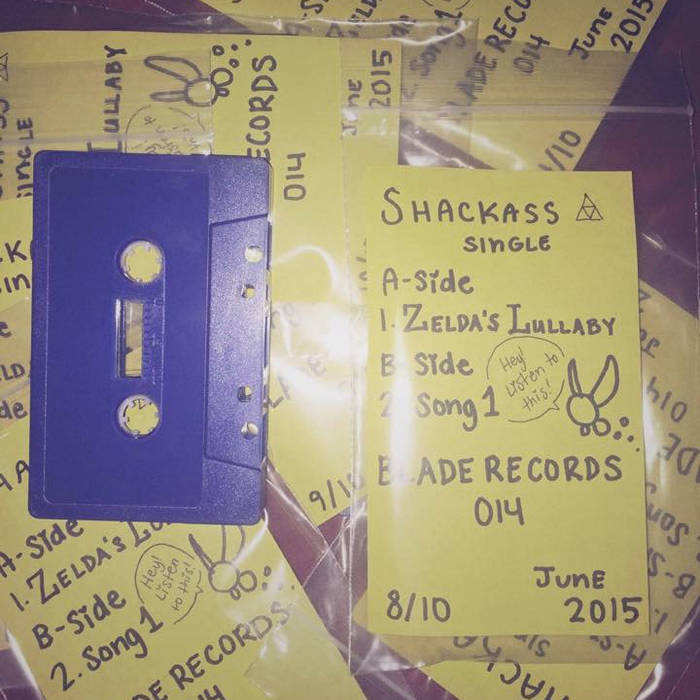 SHACKASS
SINGLE
A-Side
1. ZELDA'S LULLABY
B-Side
2. Song 1
Hey!
Listen to
this!
BLADE RECORDS
014
June
2015
8/10
LULLABY
SINGLE
ECORDS
014
June
2015
9/10
A-Side
1. ZELDA'S LU
B-Side
2. Song 1
Hey!
Listen
to this!
DE RECORDS
14
LADE RECO
014
June
2015
/10